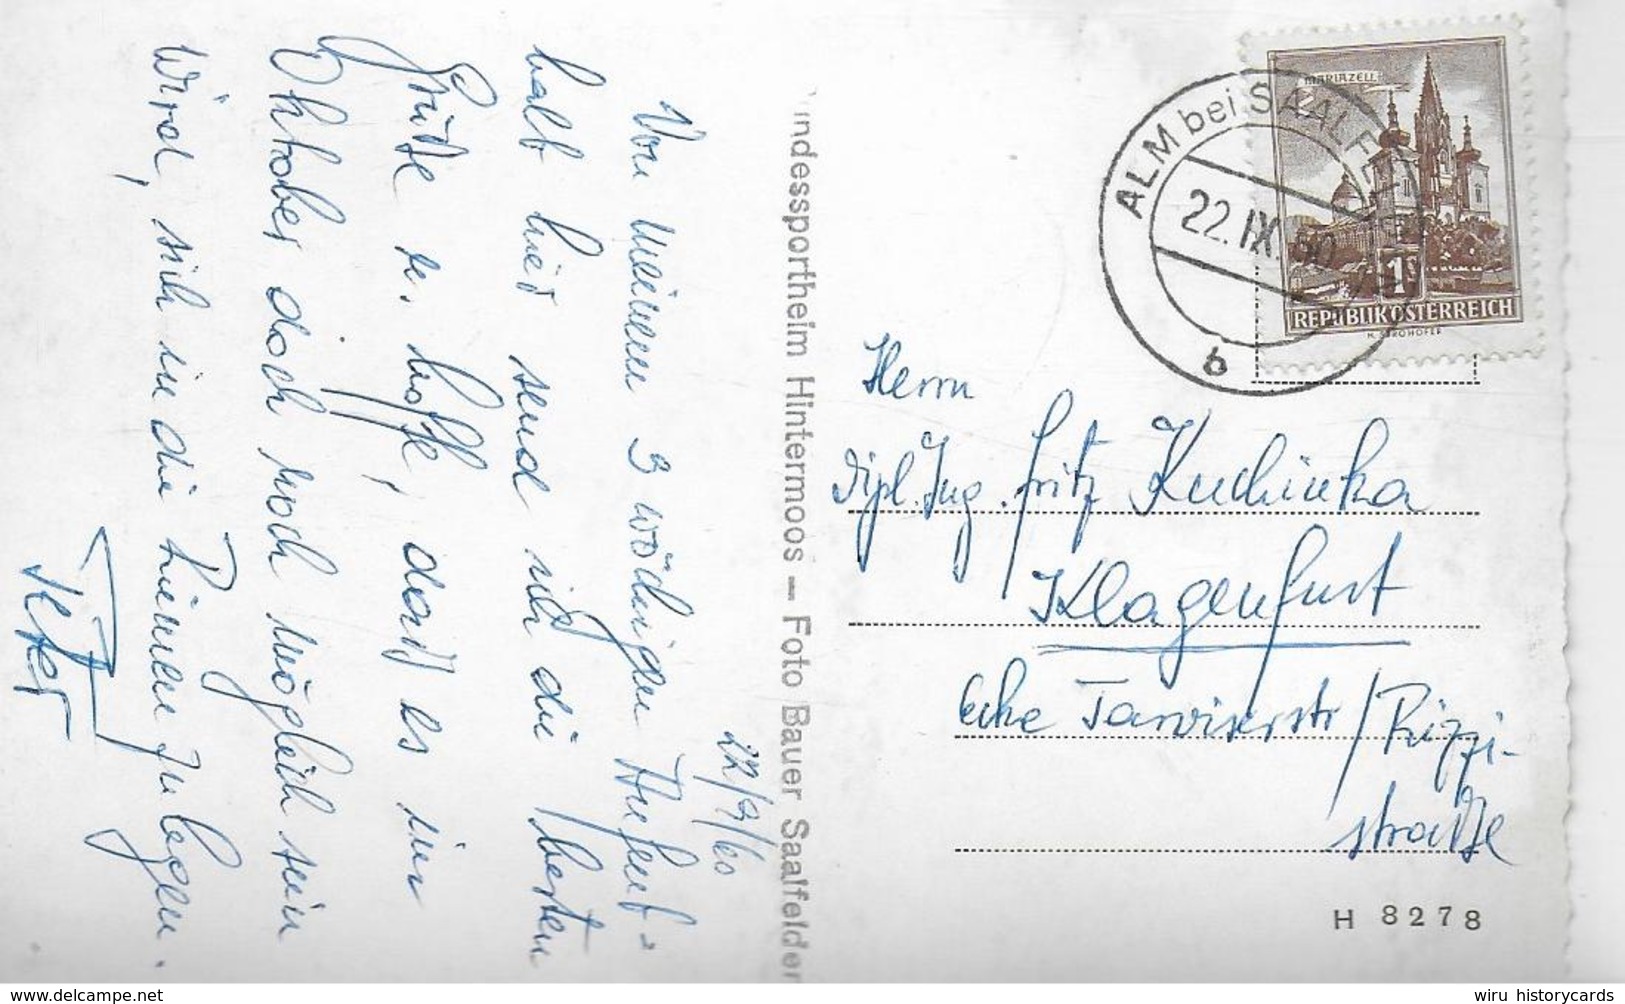 22/9/60
Von meinem 3 wöchigen Aufent=
halt hier send ich die besten
Grüße u. hoffe, daß es im
Oktober doch noch möglich sein
wird, sich in die Riemen zu legen.
Peter
undessportheim Hintermoos — Foto Bauer Saalfelden
ALM bei SAALFELDEN
22. IX. 60
b
MARIAZELL
1S
REPUBLIK ÖSTERREICH
Herrn
Dipl. Ing. Fritz Kuchinka
Klagenfurt
Ecke Tarviserstr / Rizzi-
straße
H 8278
www.delcampe.net
wiru historycards